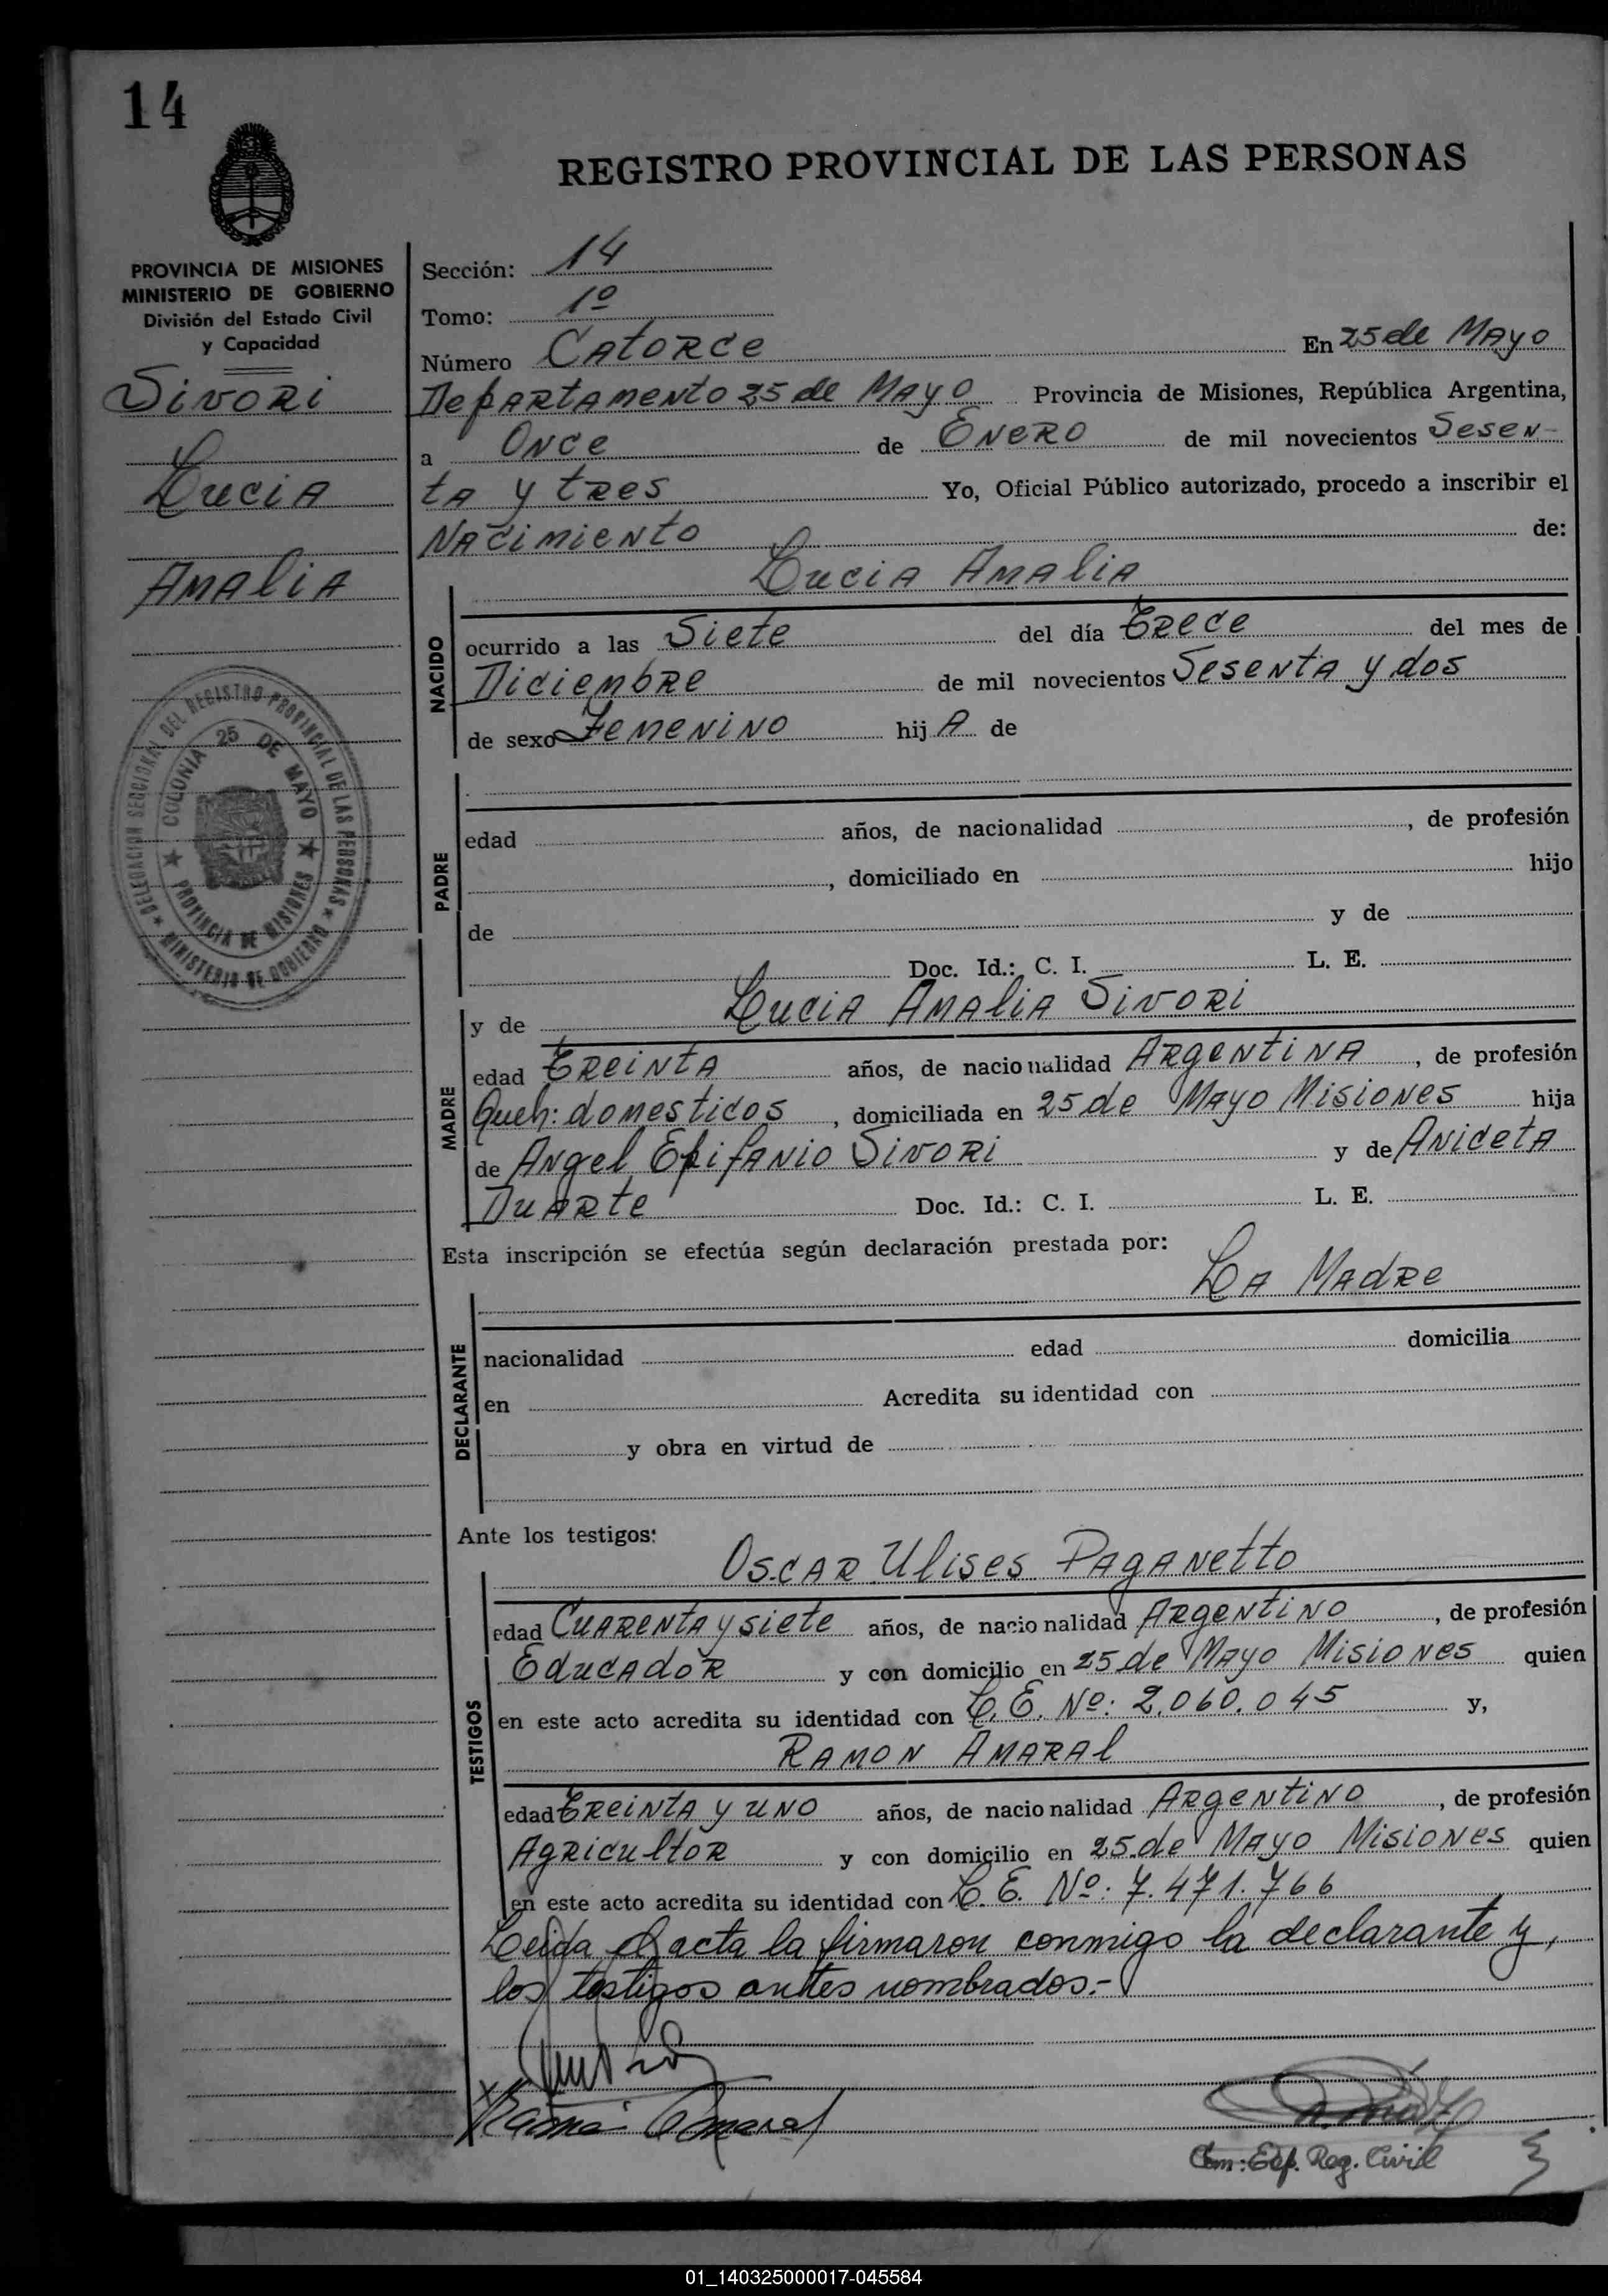 14
REGISTRO PROVINCIAL DE LAS PERSONAS
PROVINCIA DE MISIONES
MINISTERIO DE GOBIERNO
División del Estado Civil
y Capacidad
Sivori
Lucia
Amalia
DELEGACION SECCIONAL DEL REGISTRO PROVINCIAL DE LAS PERSONAS
MINISTERIO DE GOBIERNO
COLONIA 25 DE MAYO
PROVINCIA DE MISIONES
Sección: 14
Tomo: 1º
Número Catorce En 25 de Mayo
Departamento 25 de Mayo Provincia de Misiones, República Argentina,
a Once de Enero de mil novecientos Sesen-
ta y tres Yo, Oficial Público autorizado, procedo a inscribir el
Nacimiento de:
Lucia Amalia
NACIDO
ocurrido a las Siete del día Trece del mes de
Diciembre de mil novecientos Sesenta y dos
de sexo Femenino hij A de
PADRE
edad años, de nacionalidad , de profesión
, domiciliado en hijo
de y de
Doc. Id.: C. I. L. E.
MADRE
y de Lucia Amalia Sivori
edad Treinta años, de nacionalidad Argentina , de profesión
Queh: domesticos , domiciliada en 25 de Mayo Misiones hija
de Angel Epifanio Sivori y de Aniceta
Duarte Doc. Id.: C. I. L. E.
Esta inscripción se efectúa según declaración prestada por:
La Madre
DECLARANTE
nacionalidad edad domicilia
en Acredita su identidad con
y obra en virtud de
Ante los testigos:
Oscar Ulises Paganetto
TESTIGOS
edad Cuarenta y siete años, de nacionalidad Argentino , de profesión
Educador y con domicilio en 25 de Mayo Misiones quien
en este acto acredita su identidad con L. E. Nº: 2.060.045 y,
Ramon Amaral
edad Treinta y uno años, de nacionalidad Argentino , de profesión
Agricultor y con domicilio en 25 de Mayo Misiones quien
en este acto acredita su identidad con L. E. Nº: 7.471.766
Leida el acta la firmaron conmigo la declarante y,
los testigos antes nombrados.-
Ramon Amaral
Reg. Civil
01_140325000017-045584